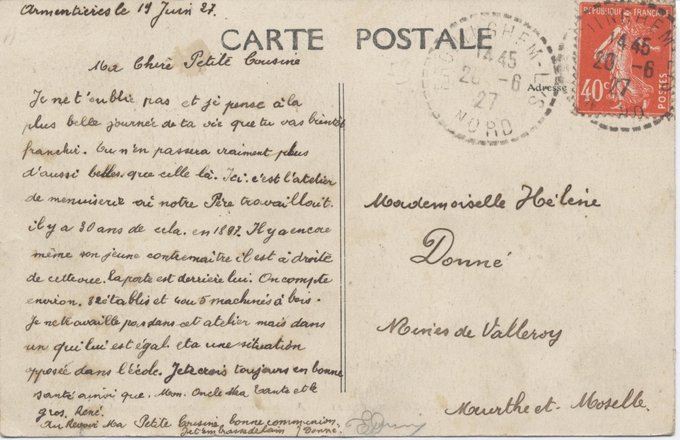 Armentières le 19 Juin 27.
CARTE POSTALE
Ma Chère Petite Cousine
Je ne t'oublie pas et je pense à la
plus belle journée de ta vie que tu vas bientôt
franchir. Tu n'en passera vraiment plus
d'aussi belles que celle là. Ici c'est l'atelier
de menuiserie où notre Père travaillait.
il y a 30 ans de cela. en 1897. Il y a encore
même son jeune contremaître il est à droite
de cette vue. la porte est derrière lui. On compte
environ. 32 établis et 4 ou 5 machines à bois.
Je ne travaille pas dans cet atelier mais dans
un qui lui est égal et a une situation
opposée dans l'école. Je te crois toujours en bonne
santé ainsi que. Mon. Oncle Ma Tante et le
gros. René.
Au Revoir Ma Petite Cousine, bonne communion,
Je t'embrasse de loin Donné.
ERQUINGHEM-LYS
14 45
20 - 6
27
NORD
REPUBLIQUE FRANCAISE
40c
POSTES
14 45
20 - 6
27
Adresse
Mademoiselle Hélène
Donné
Mines de Valleroy
Meurthe-et-Moselle.